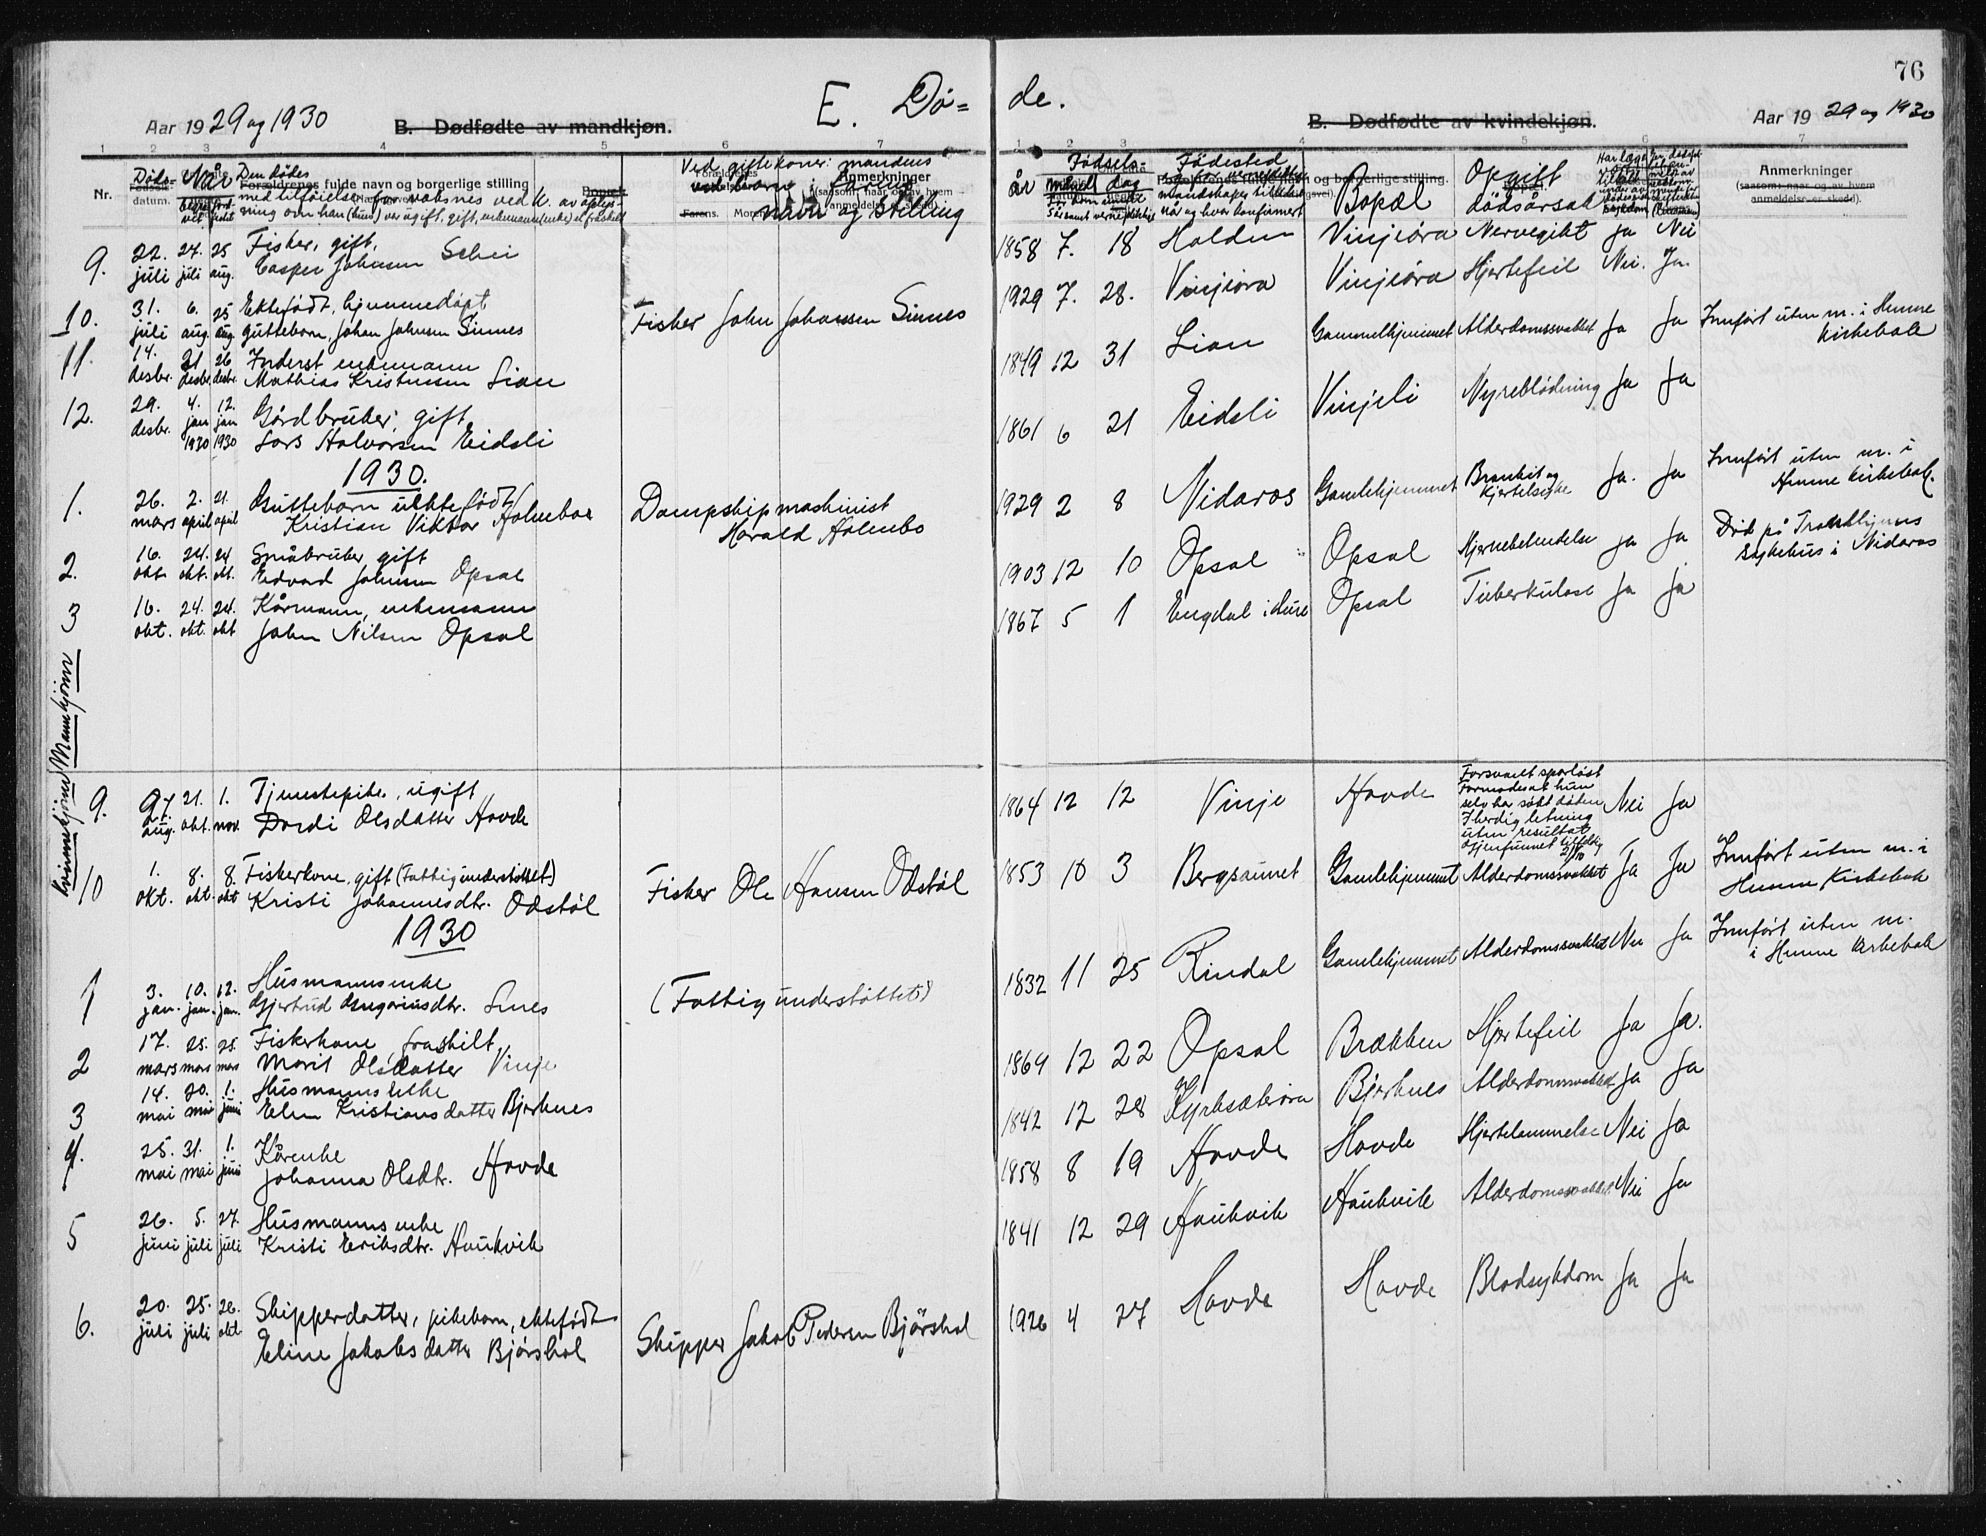 76
E. Dø= de.
Aar 1929 og 1930
B. Dødfødte av mandkjøn.
B. Dødfødte av kvindekjøn.
Aar 1929 og 1930
1 2 3 4 5 6 7
1 2 3 4 5 6 7
Nr.
Døds- datum.
Når
Den dødes
Forældrenes fulde navn og borgerlige stilling
med tilføielse for voksnes vedk. av oplys-
ning om han (hun) var ugift, gift, enkemann (enke) el. fraskilt
Bopæl.
Ved gifte koner: mandens
ved barn: farens
navn og stilling
Anmerkninger
Fødsels-
år måned dag
Fødested
når og hvor konfirmert
og borgerlige stilling.
Bopæl
Opgift dødsårsak
Anmerkninger
(saasom: naar og av hvem
anmeldelse er skedd).
9. 22. juli 24. juli 25 aug. Fisker, gift,
Casper Johnsen Schei
1858 7. 18 Halden Vinjeöra Nervegikt Ja Nei
10. 31. juli 6. aug. 25 aug Ektefødt, hjemmedøpt
gutteborn, Johan Johnsen Sinnes Fisker John Johansen Sinnes
1929 7. 28. Vinjeöra Vinjeöra Hjertefeil Nei. Ja.
11. 14. desbr. 21 desbr. 26 desbr. Inderst enkemann
Mathias Kristensen Lian
1849 12 31 Lian Gammelhjemmet Alderdomssvakhet Ja Ja Innført uten nr. i Hemne
Kirkebok
12. 29. desbr. 4. jan 1930 12. jan 1930 Gårdbruker, gift
Lars Halvorsen Eidsli
1861 6 21 Eidsli Vinjeli Nyreblödning Ja Ja
1930.
1. 26. mars 2. april 21. april Gutteborn uekte født
Kristian Viktor Holmboe Dampskipmaskinist
Harald Holmbo
1929 2 8 Nidaros Gamlehjemmet Bronkit og
Kjertelsyke Ja. Ja Innført uten nr. i
Hemne Kirkebok.
2. 16. okt. 24. okt. 24 okt. Småbruker, gift
Edvard Johnsen Opsal
1903 12 10 Opsal Opsal Hjernebetendelse Ja Ja Död på Trondhjems
Sykehus i Nidaros
3 16. okt. 24. okt. 24. okt Kårmann, enkemann
John Nilsen Opsal
1867 5 1 Engdal i Aure Opsal Tuberkulose Ja Ja
Mannkjönn
Kvinnekjönn
9. 27. aug. 21. okt. 1. nov. Tjenestepike, ugift
Dordi Olsdatter Hovde
1864 12 12 Vinje Hovde Forsvant sporløst
Formodes at hun
selv har søkt döden
Iherdig letning
uten resultat
Gjenfunnet tilfeldig
Nei Ja
10 1. okt. 8. okt. 8. okt Fiskerkone, gift (Fattigunderstöttet)
Kristi Johannesdtr. Odstöl Fisker Ole Hansen Odstöl
1853 10 3 Bergsaunet Gamlehjemmet Alderdomssvakhet Ja Ja Innført uten nr. i
Hemne Kirkebok
1930
1 3. jan. 10. jan. 12. jan. Husmannsenke
Gjertrud Gregoriusdtr. Snes (Fattigunderstöttet)
1832 11 25 Rindal Gamlehjemmet Alderdomssvakhet Nei Ja Innført uten nr.
i Hemne Kirkebok
2 17. mars 25. mars 25. mars Fiskerkone fraskilt
Marit Olsdatter Vinje
1869 12 22 Opsal Brækken Hjertefeil Ja Ja.
3 14. mai 20. mai 1. juni Husmannsenke
Elen Kristiansdatter Bjerknes
1842 12 28 Kyrksæterøra Bjerknes Alderdomssvakhet Ja Ja
4. 25. mai 31. mai 1. juni Kårenke
Johanna Olsdtr. Hovde
1858 8 19 Hovde Hovde Hjertelammelse Nei Ja
5 26. juni 5. juli 27. juli Husmannsenke
Kristi Eriksdtr. Haukvik
1841 12 29 Haukvik Haukvik Alderdomssvakhet Nei Ja
6. 20. juli 25. juli 26. okt. Skipperdatter, pikebarn, ektefødt
Eline Jakobsdatter Bjørshol Skipper Jakob Pedersen Bjørshol
1926 4 27 Hovde Hovde Blodsykdom Ja Ja